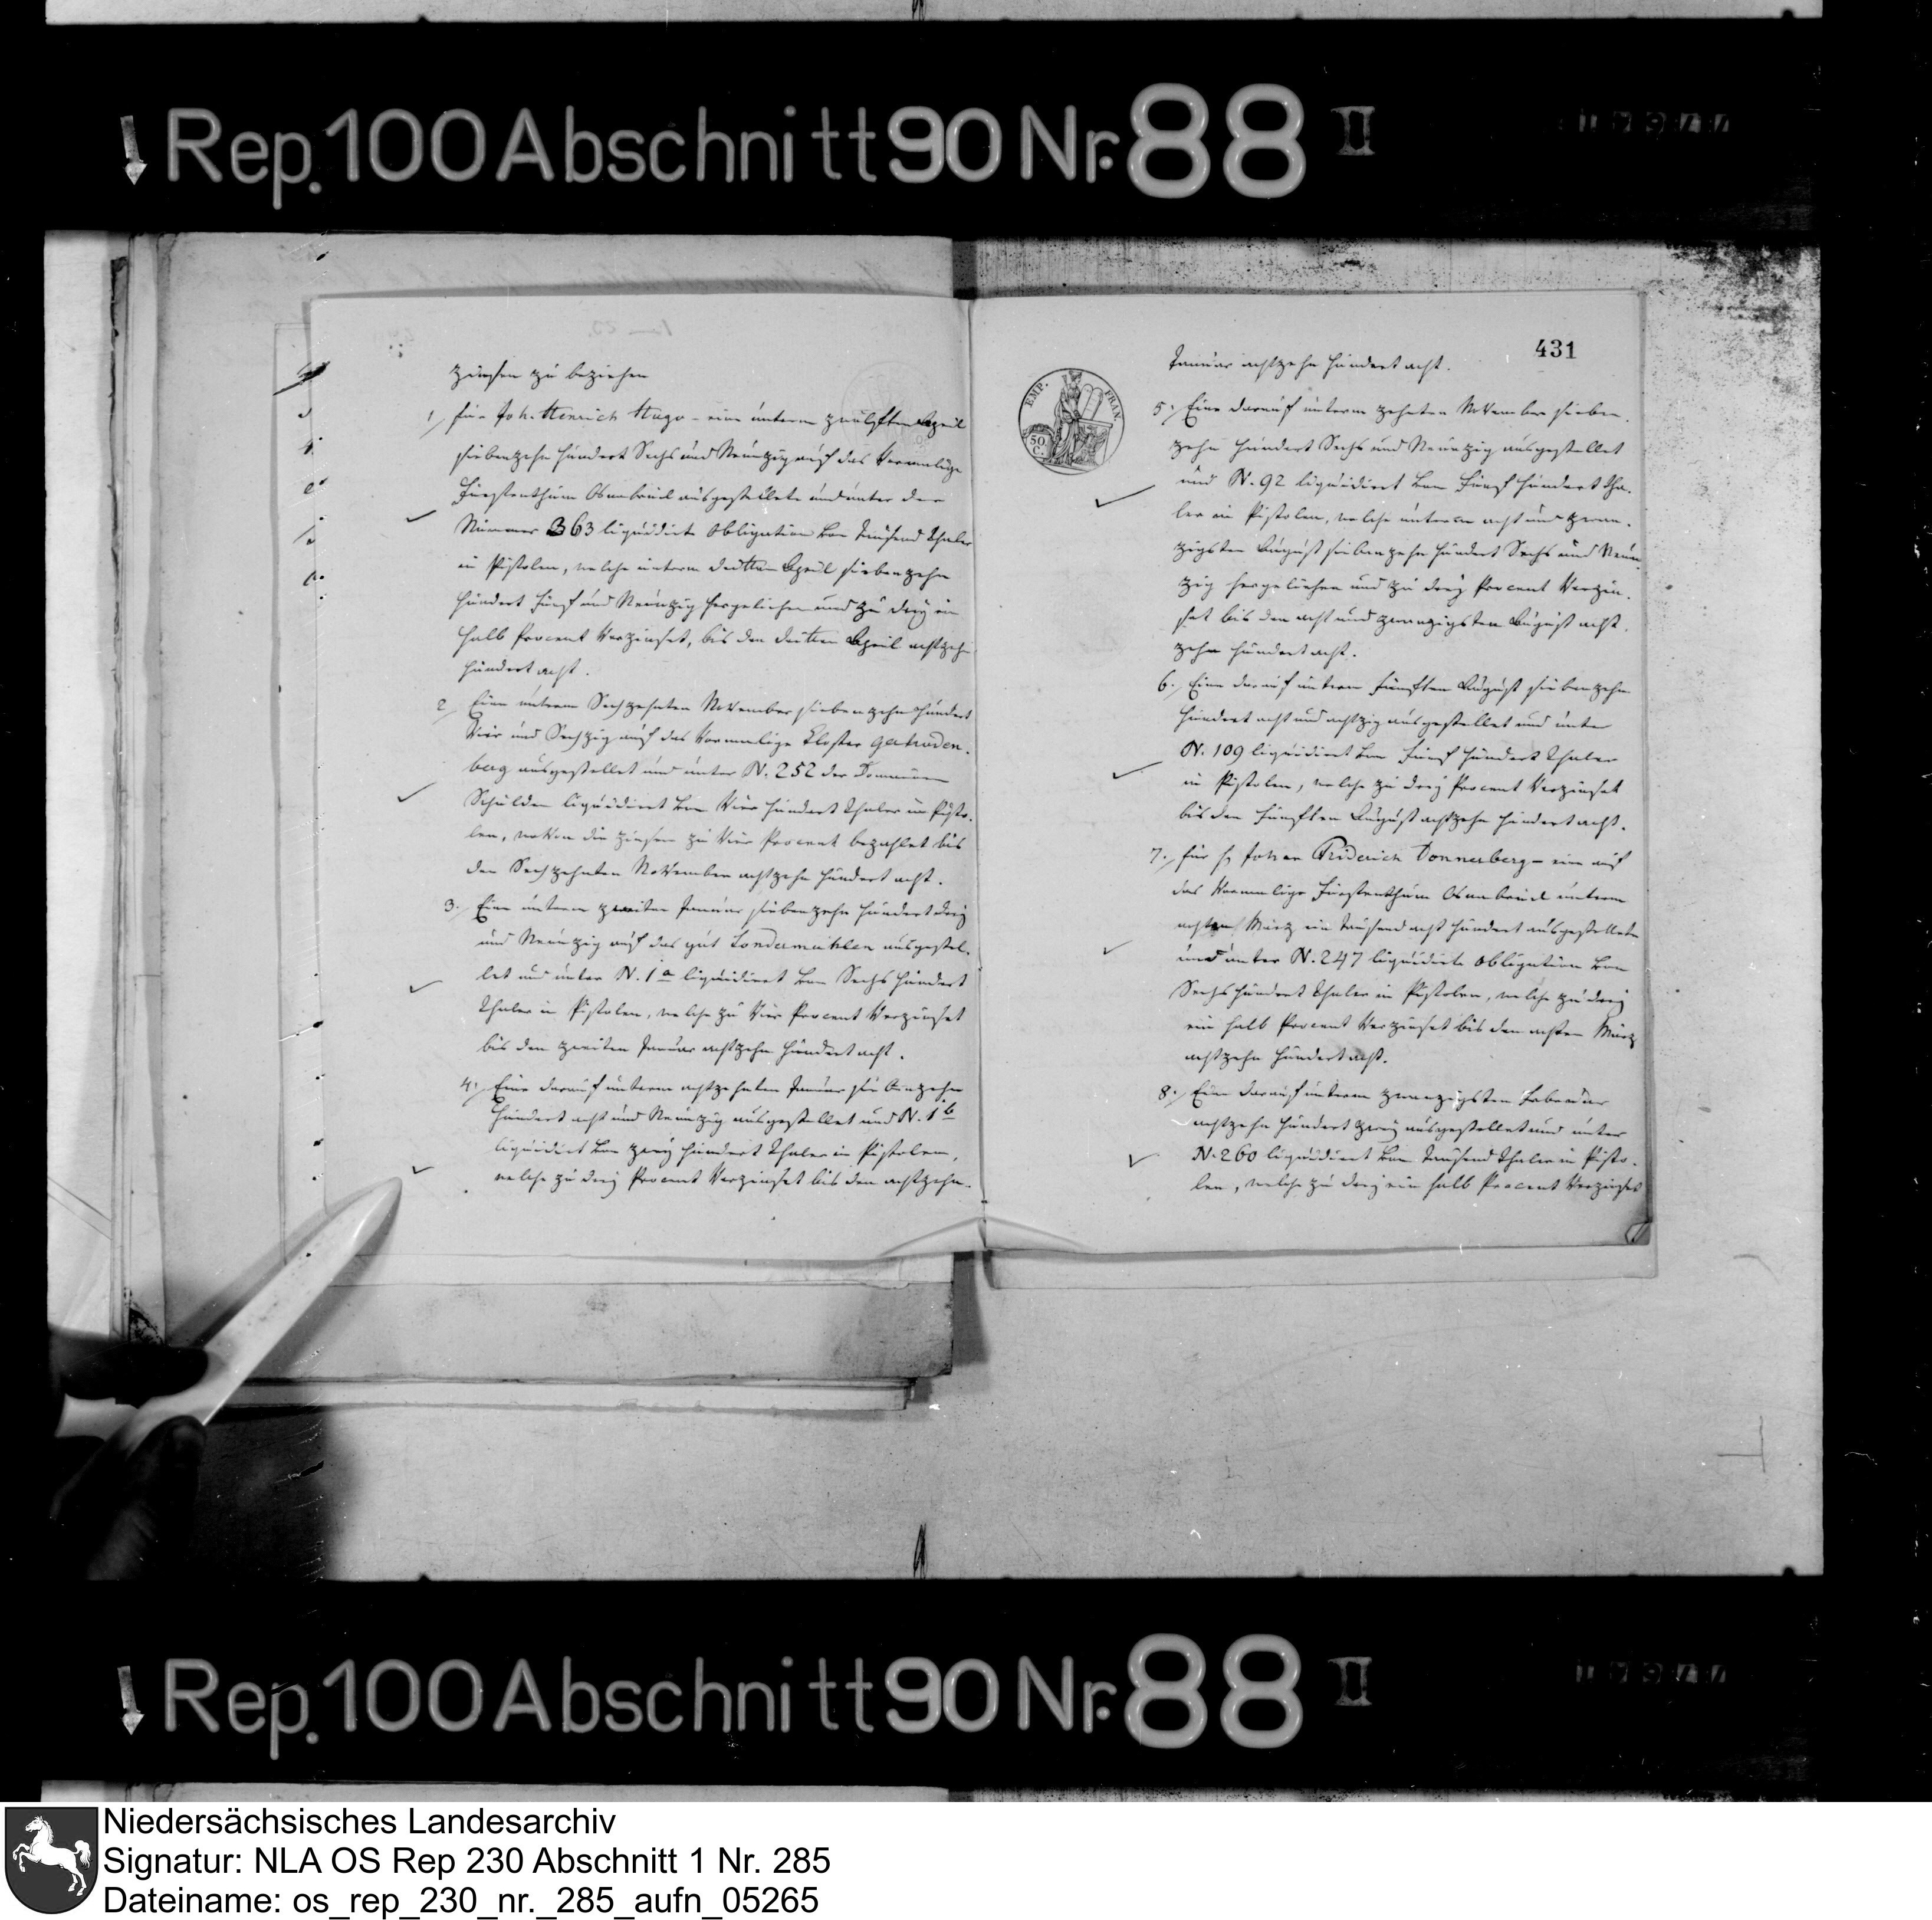 Rep. 100 Abschnitt 90 Nr. 88 II
Zinsen zu beziehen
1, für Joh. Henrich Hugo – eine unterm zwölften April
siebenzehn hundert Sechs und Neunzig auf das Vormalige
Fürstenthum Osnabrück ausgestellete und unter der
Nummer 363 liquidirte Obligation von Tausend Thaler
in Pistolen, welche unterm dritten April siebenzehn
hundert Fünf und Neunzig hergeliehen und zu drey ein
halb Procent Verzinset, bis den dritten April achtzehn
hundert acht.
2, Eine unterm Sechzehnten November siebenzehn hundert
Vier und Sechzig auf das Vormalige Kloster Gertruden-
berg ausgestellet und unter N. 252 der Domainen
Schulden liquidiret von Vier hundert Thaler in Pisto-
len, wovon die Zinsen zu Vier Procent bezahlet bis
den Sechzehnten November achtzehn hundert acht.
3., Eine unterm zweiten Januar siebenzehn hundert drey
und Neunzig auf das gut Sondermühlen ausgestel-
let und unter N. 1a liquidiret von Sechs hundert
Thaler in Pistolen, welche zu Vier Procent Verzinset
bis den zweiten Januar achtzehn hundert acht.
4., Eine darauf unterm achtzehnten Januar siebenzehn
hundert acht und Neunzig ausgestellet und N. 1b
liquidirt von zwey hundert Thaler in Pistolen,
welche zu drey Procent Verzinset bis den achtzehn-
431
EMP. FRAN.
50 C.
Januar achtzehn hundert acht.
5., Eine darauf unterm zehnten November sieben-
zehn hundert Sechs und Neunzig ausgestellet
und N. 92 liquidiret von Fünf hundert Tha-
ler in Pistolen, welche unterm acht und zwan-
zigsten August siebenzehn hundert Sechs und Neun-
zig hergeliehen und zu drey Procent Verzin-
set bis den acht und zwanzigsten August acht-
zehn hundert acht.
6., Eine darauf unterm fünften August siebenzehn
hundert acht und achtzig ausgestellet und unter
N. 109 liquidiret von Fünf hundert Thaler
in Pistolen, welche zu drey Procent Verzinset
bis den fünften August achtzehn hundert acht.
7., für Johan Friderich Donnerberg – eine auf
das Vormalige Fürstenthum Osnabrück unterm
achten März ein Tausend acht hundert ausgestellete
und unter N. 247 liquidirte Obligation von
Sechs hundert Thaler in Pistolen, welche zu drey
ein halb Procent Verzinset bis den achten März
achtzehn hundert acht.
8., Eine darauf unterm zwanzigsten Februar
achtzehn hundert zwey ausgestellet und unter
N. 260 liquidiret von Tausend Thaler in Pisto-
len, welche zu drey ein halb Procent Verzinset
Rep. 100 Abschnitt 90 Nr. 88 II
Niedersächsisches Landesarchiv
Signatur: NLA OS Rep 230 Abschnitt 1 Nr. 285
Dateiname: os_rep_230_nr._285_aufn_05265